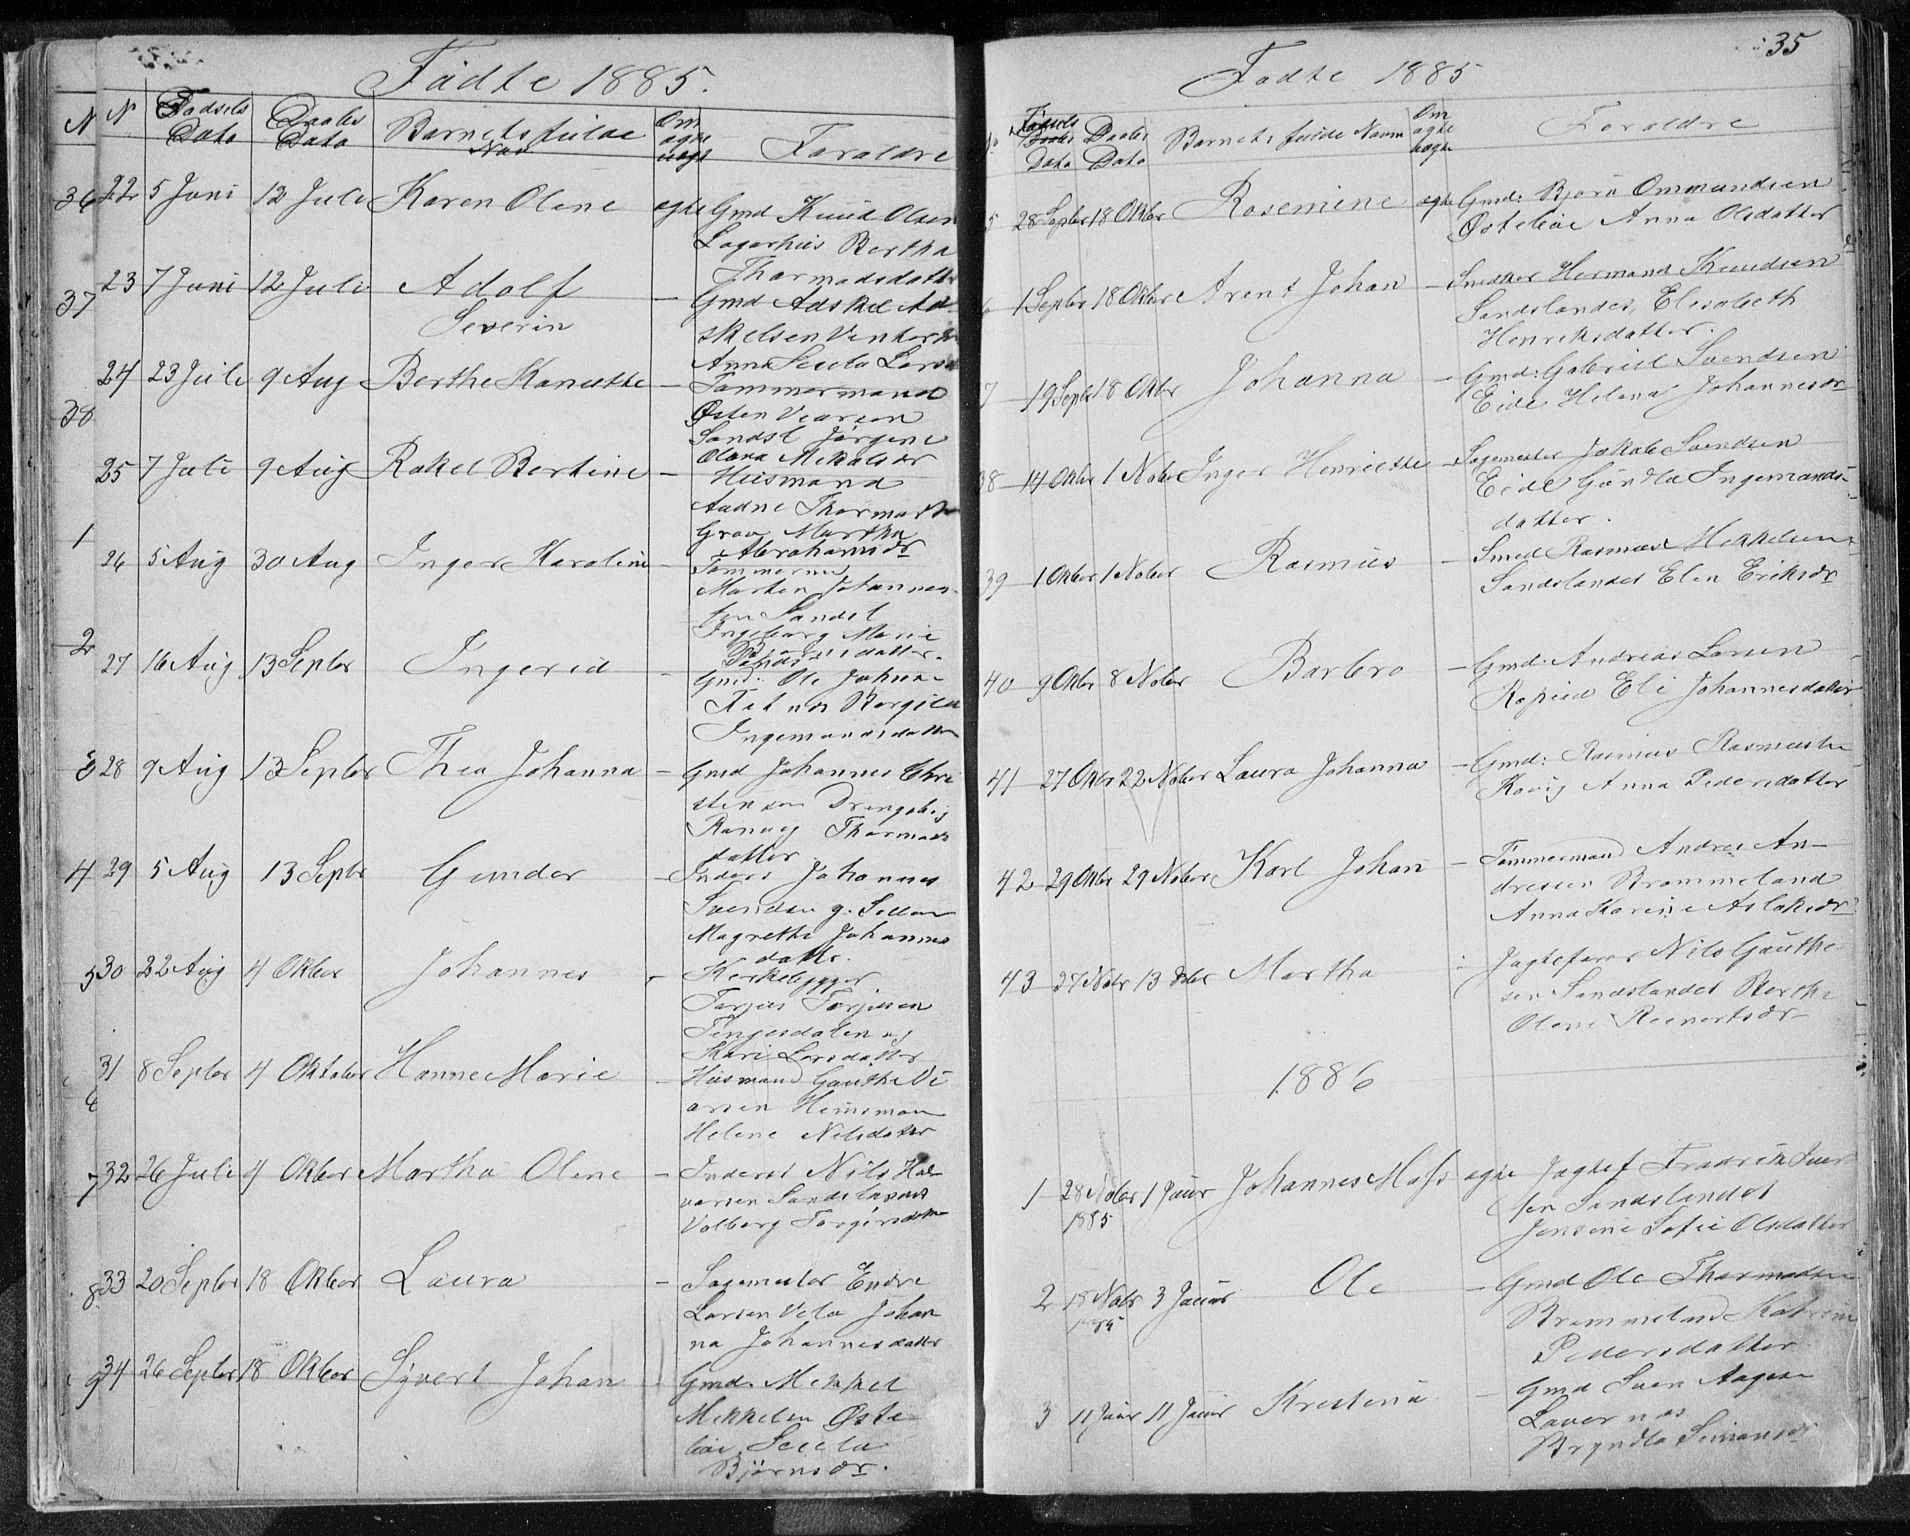 Födte 1885.
N N Fødsels Dato Daabs Dato Barnets fulde Nav Om ægte uægt Foraldre
36 22 5 Juni 12 Juli Karen Olene egte Gmd Knud Olsen
Lagarhus Bertha
Thormodsdatter
37 23 7 Juni 12 Juli Adolf Severin — Gmd Adskel Ad
skelsen
Anna Lars
38 24 23 Juli 9 Aug Berthe — Tømmermand
Østen Viarsen
Sandsl Jörgene
25 7 Juli 9 Aug Rakel Bertine — Husmand
Audne
Grav Martha
Abrahamsdr
1 26 5 Aug 30 Aug Inger Karoline —
Morten Johannes
sen Sandsl
Ingeborg Marie
2 27 16 Aug 13 Septbr Ingerid — Gmd. Ole
Ingemundsdatter
3 28 9 Aug 13 Septbr Thea Johanna — Gmd Johannes Chri
stensen
Thormods
datter
4 29 5 Aug 13 Septbr Gunder — Inderst Johannes
Svendsen
Magrethe Johannes
datter.
5 30 22 Aug 4 Oktbr Johannes Kirkebygger
Torjus Torjusen
Tengesdalen og
Kari Larsdatter
6 31 8 Septbr 4 Oktober Hanne Marie — Husmand Gauthe Vi
arsen
Helene Nilsdatter
7 32 26 Juli 4 Oktbr Martha Olene — Inderst Nils Hal
vorsen Sandslandet
Valborg
8 33 20 Septbr 18 Oktbr Laura — Sagmester Endre
Larsen Johan
na Johannesdatter
9 34 26 Septbr 18 Oktbr Syvert Johan — Gmd. Mikkel
Mikkelsen Øste
Björnsdr.
35
Fødte 1885
Fødsels Dato Daabs Dato Barnets fulde Navn Om ægte uægte Foraldre
5 28 Septbr 18 Oktbr Rosemine egte Gmd: Bjørn Ommundsen
Østebø Anna Olsdatter
6 1 Septbr 18 Oktbr Arent Johan — Snedker Hermand Knudsen
Sandslandet, Elisabeth
Henriksdatter.
7 19 Septbr 18 Oktbr Johanna — Gmd: Gabriel Svendsen
Eide Helena Johannesdr
38 14 Oktbr 1 Nobr Inger Henriette — Sagmester Jakob Svendsen
Eide Gundla Ingemunds-
datter.
39 1 Oktbr 1 Nobr Rasmus — Smed Rasmus Mikkelsen
Sandslandet Elen Eriksdr
40 9 Oktbr 8 Nobr Barbro — Gmd. Andreas Larsen
Eli Johannesdatter
41 27 Oktbr 22 Nobr Laura Johanna — Gmd: Rasmus Rasmussen
Anna Pedersdatter
42 29 Oktbr 29 Nobr Karl Johan — Tømmermand Andres An—
dresen Brommeland
Anna Karine Aslaksdr
43 27 Nobr 13 Martha Jagtefører Nils Gauthe
sen Sandslandet Berthe
Olene Reinertsdr
1886
1 28 Nobr 1885 1 Jaur Johannes egte Jagtef Fredrik Iver
sen Sandslandet
Jensene Sofie Olsdatter
2 18 Nobr 1885 3 Januar Ole — Gmd Ole Thormodsen
Brommeland Katrine
Pedersdatter
3 11 Jaur 11 Jaur Kristena — Gmd Sven Aagesen
Lauvernæs
Bryndla Simonsdr